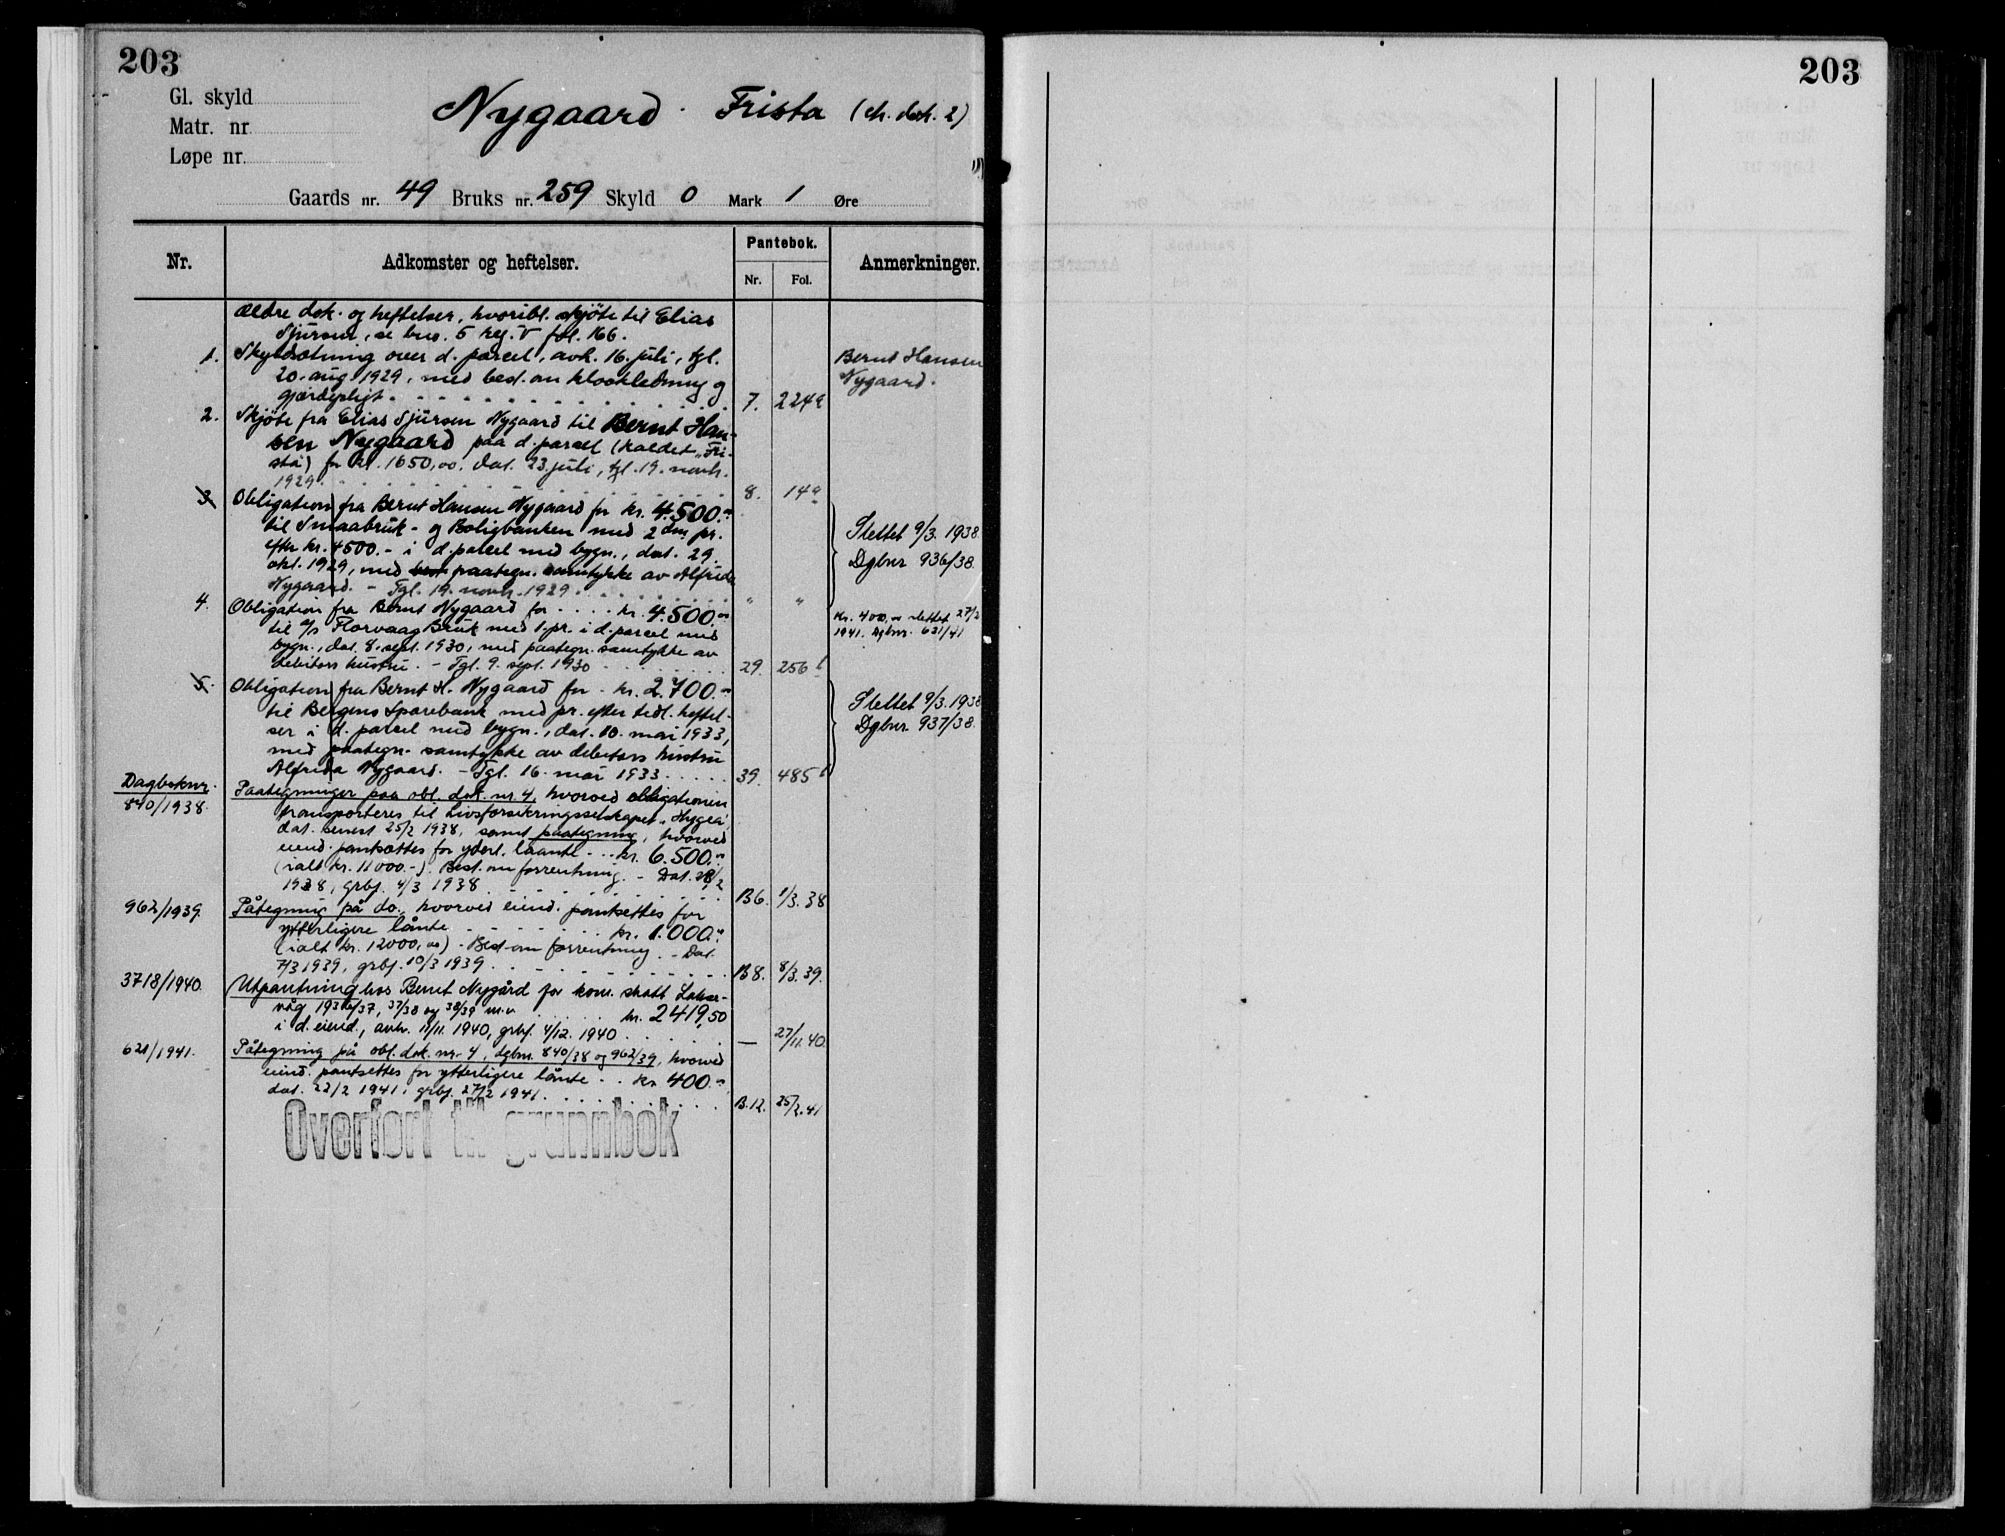 203
203
Gl. skyld
Matr. nr
Løpe nr.
Nygaard. Frista (cfr. dok. 2)
Gaards nr. 49 Bruks nr. 259 Skyld 0 Mark 1 Øre
Nr.
Adkomster og heftelser.
Pantebok.
Nr. Fol.
Anmerkninger.
Ældre dok. og heftelser, hvoribl. skjöte til Elias
Sjursen, se bnr. 5 reg. V fol. 166.
1. Skyldsætning over d. parcel, avh. 16. juli, tgl.
20. aug. 1929, med best. om kloakledning og
gjærdepligt. 7. 224a
Bernt Hansen
Nygaard.
2. Skjöte fra Elias Sjursen Nygaard til Bernt Han-
sen Nygaard paa d. parcel (kaldet „Fri-
sta") for kr. 1650,00. Dat. 23 juli, tgl. 19. novb.
1929 8. 14a
3. Obligation fra Bernt Hansen Nygaard for kr. 4.500.-
til Smaabruk- og Boligbanken med 2den pr.
efter kr. 4500.- i d. parcel med bygn., dat. 29.
okt. 1929, med best paategn. samtykke av Alfrida
Nygaard. - Tgl. 19. novb. 1929 " "
Slettet 9/3. 1938
Dgbnr 936/38.
4. Obligation fra Bernt Nygaard for kr. 4.500.00
til a/s Florvaag Bruk med 1. pr. i d. parcel med
bygn., dat. 8. sept. 1930, med paategn. samtykke av
debitors hustru. - Tgl. 9. sept. 1930 29. 256b
Kr. 400,00 slettet 27/2
1941. Dgbnr. 621/41
5. Obligation fra Bernt H. Nygaard for kr. 2.700.-
til Bergens Sparebank med pr. efter tidl. heftel-
ser i d. parcel med bygn., dat. 10. mai 1933,
med paategn. samtykke av debitors hustru
Alfrida Nygaard. - Tgl. 16. mai 1933 39. 485b
Slettet 9/3. 1938
Dgbnr. 937/38.
Dagboknr.
840/1938. Paategninger paa obl. dok. nr. 4, hvorved obligationen
transporteres til Livsforsikringsselskapet „Hygea",
dat. senest 25/2 1938, samt paategning, hvorved
eiend. pantsættes for yderl. laante kr. 6.500.-
(ialt kr. 11000.-). Best. om forrentning. - Dat. 28/2
1938, grbf. 4/3 1938 B6. 1/3. 38
962/1939. Påtegning på do., hvorved eiend. pantsettes for
ytterligere lånte kr. 1.000.-
(ialt kr. 12000,00). - Best. om forrentning. - Dat.
7/3 1939, grbf. 10/3 1939. B8. 8/3. 39.
3718/1940. Utpantning hos Bernt Nygård for kom. skatt Lakse-
våg 1936/37, 37/38 og 38/39 m.v. kr. 2419,50
i d. eiend., avh. 11/11. 1940, grbf. 4/12. 1940 — 27/11. 40.
621/1941. Påtegning på obl. dok. nr. 4, dgbnr. 840/38 og 962/39, hvorved
eiend. pantsettes for ytterligere lånte kr 400.-
dat. 22/2 1941, grbf. 27/2 1941. B.12. 25/2. 41
Overført til grunnbok